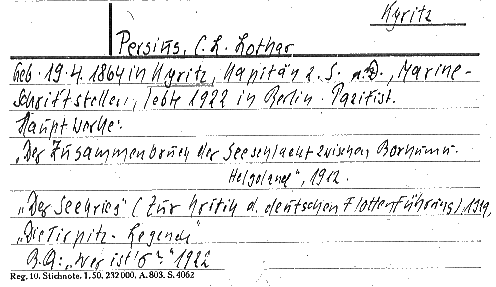 Kyritz
Persius, C. L. Lothar
Geb. 19.4.1864 in Kyritz, Kapitän z. S. a.D., Marine-
Schriftsteller, lebte 1922 in Berlin. Pazifist.
Hauptwerke:
„Der Zusammenbruch der Seeschlacht zwischen Borkum u.
Helgoland", 1912.
„Der Seekrieg" (Zur Kritik d. deutschen Flottenführung) 1919,
„Die Tirpitz-Legende"
B.Q.: „Wer ist's?" 1922
Reg. 10. Stichnote. 1. 50. 232 000. A. 803. S. 4062